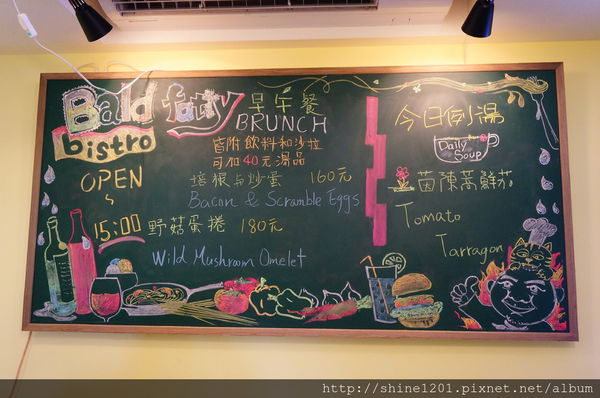 Bald fatty
bistro
OPEN
~
15:00
早午餐
BRUNCH
皆附飲料和沙拉
可加40元湯品
培根与炒蛋 160元
Bacon & Scramble Eggs
野菇蛋捲 180元
Wild Mushroom Omelet
今日例湯
Daily
Soup
茵陳蒿鮮茄
Tomato
Tarragon
http://shine1201.pixnet.net/album